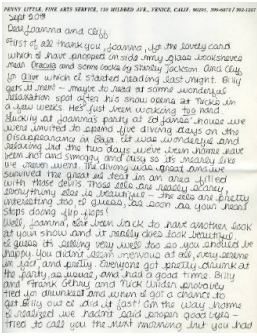 PENNY LITTLE, FINE ARTS SERVICE, 130 MILDRED AVE., VENICE, CALIF. 90291
Sept 20th
Dear Joanna and Cliff
First of all thank you, Joanna, for the lovely card
which I have propped on side my glass bookshelves
near Dracula and some books by Shirley Jackson. And Cliff
for Alive which I started reading last night. Billy
gets it next - maybe to read at some wonderful
relaxation spot after his show opens at Nick's in
a few weeks. He's just been working too hard
luckily at Joanna's party at Ed Janss' house we
were invited to spend five diving days on the
Disappearance in Baja. It was wonderful and
relaxing but the two days we've been home have
been hot and smoggy and busy so it's nearly like
we never went. The diving was great and we
survived the great eel test in an area filled
with those devils. Those eels are really scary!
everything else is beautiful - the eels are pretty
interesting too I guess, as soon as your heart
stops doing flip flops!
Well, Joanna, I sure been back to have another look
at your show and it really does look beautiful.
I guess it's selling very well too so you should be
happy. You didn't seem nervous at all, very serene
in fact and pretty. Everyone got pretty drunk at
the party as usual and had a good time. Billy
and Frank Gehry and Nick Wilder probably
tied for drunkest and when I got a chance to
get Billy out I did, fast! On the way home
I realized we hadn't said proper good byes -
tried to call you the next morning but you had